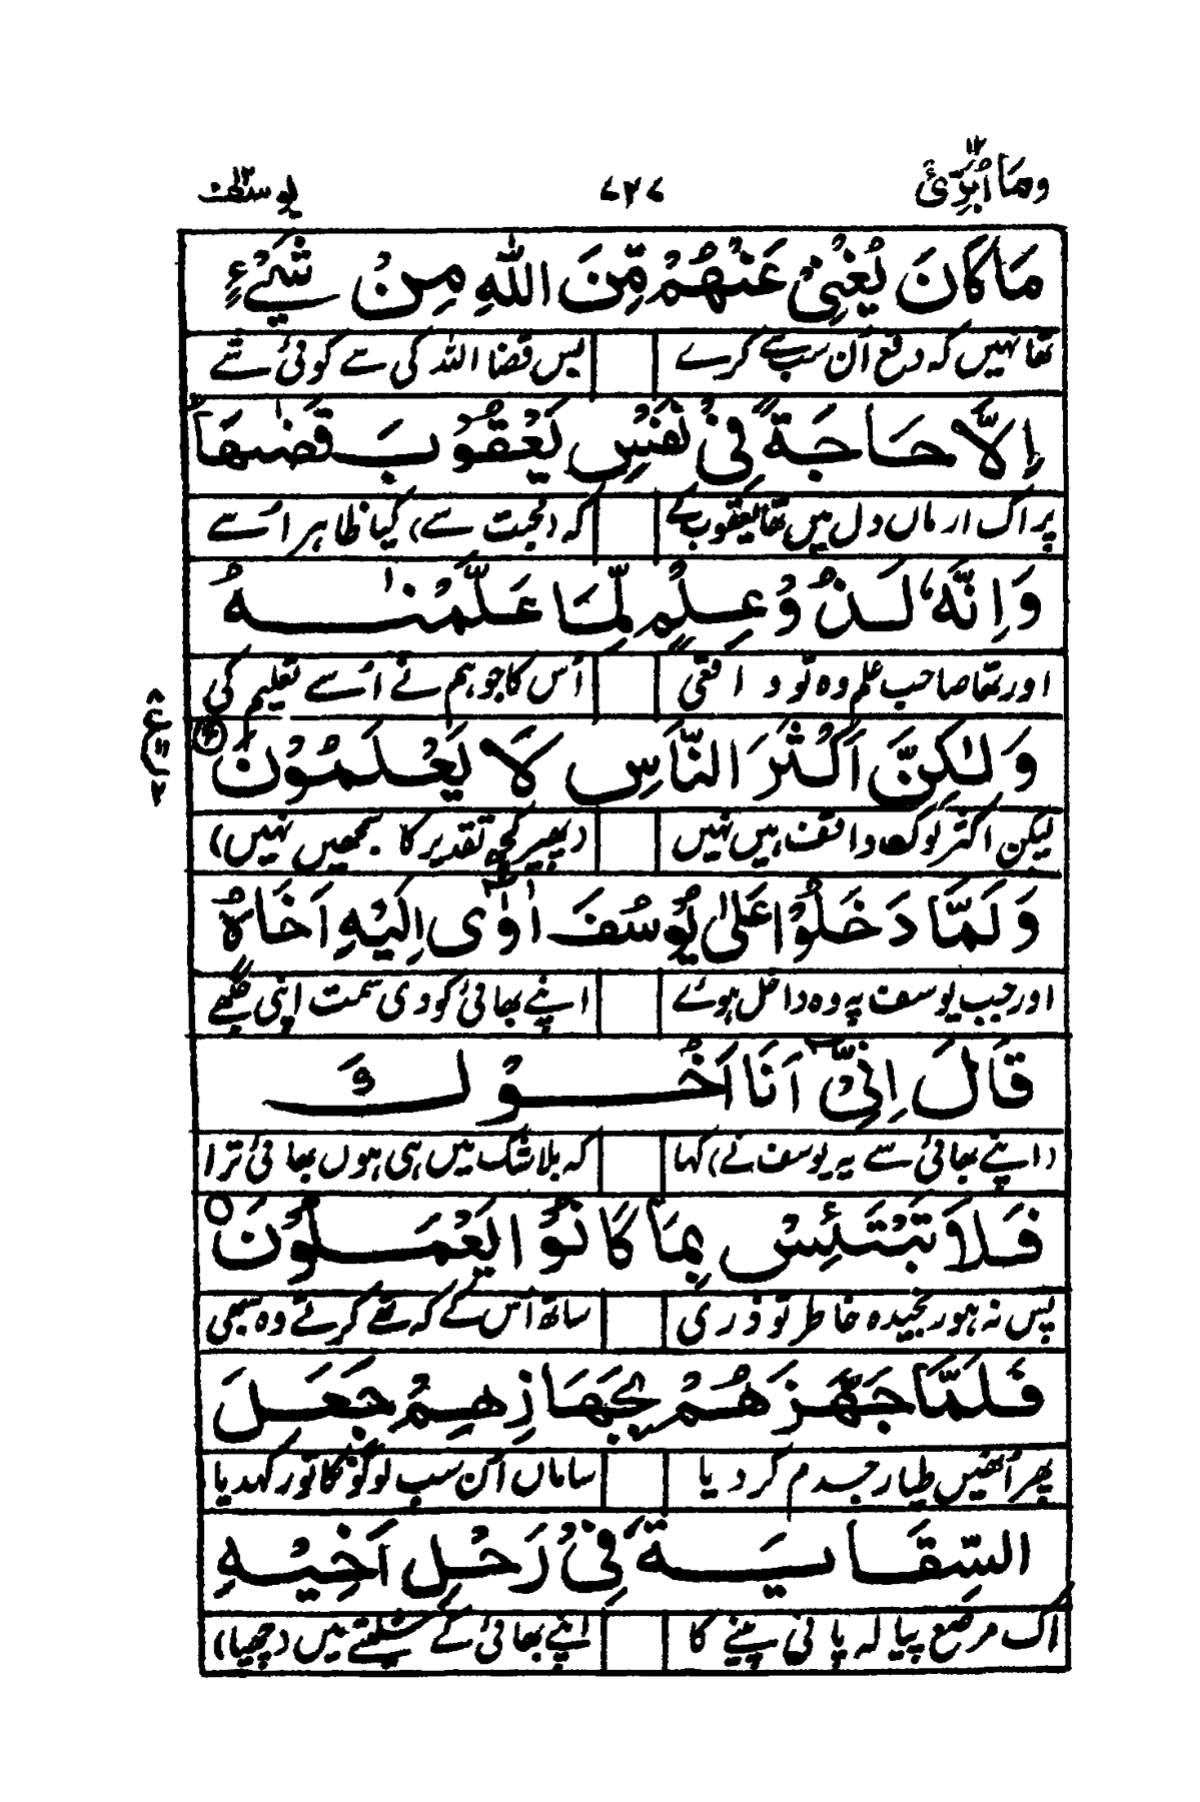 وما ابرئ ۱۳ ۷۲۷ یوسف ۱۲
مَا كَانَ يُغْنِيْ عَنْهُمْ مِّنَ اللّٰهِ مِنْ شَيْءٍ
تھا نہیں کہ دفع اُن سب سے کرے بس قضا اللہ کی سے کوئی شے
اِلَّا حَاجَةً فِيْ نَفْسِ يَعْقُوْبَ قَضٰىهَا ؕ
پر اک ارماں دل میں تھا یعقوب کے کہ (محبت سے) کیا ظاہر اُسے
وَاِنَّهٗ لَذُوْ عِلْمٍ لِّمَا عَلَّمْنٰهُ
اور تھا صاحب علم وہ تو واقعی اُس کا جو ہم نے اُسے تعلیم کی
وَلٰكِنَّ اَكْثَرَ النَّاسِ لَا يَعْلَمُوْنَ
لیکن اکثر لوگ واقف ہیں نہیں (بھید کچھ تقدیر کا سمجھیں نہیں)
وَلَمَّا دَخَلُوْا عَلٰى يُوْسُفَ اٰوٰٓى اِلَيْهِ اَخَاهُ
اور جب یوسف پہ وہ داخل ہوئے اپنے بھائی کو دی سمت اپنی جگہ
قَالَ اِنِّيْٓ اَنَا اَخُوْكَ
(اپنے بھائی سے یہ یوسف نے) کہا کہ بلا شک میں ہی ہوں بھائی ترا
فَلَا تَبْتَئِسْ بِمَا كَانُوْا يَعْمَلُوْنَ ○
پس نہ ہو رنجیدہ خاطر تو ذری ساتھ اُس کے کہ تھے کرتے وہ سبھی
فَلَمَّا جَهَّزَهُمْ بِجَهَازِهِمْ جَعَلَ
پھر اُنھیں طیار جس دم کر دیا ساماں اُن سب لوگوں کا تو رکھ دیا
السِّقَايَةَ فِيْ رَحْلِ اَخِيْهِ
اک مرصع پیالہ پانی پینے کا اپنے بھائی کے شلیتے میں (چھپا)